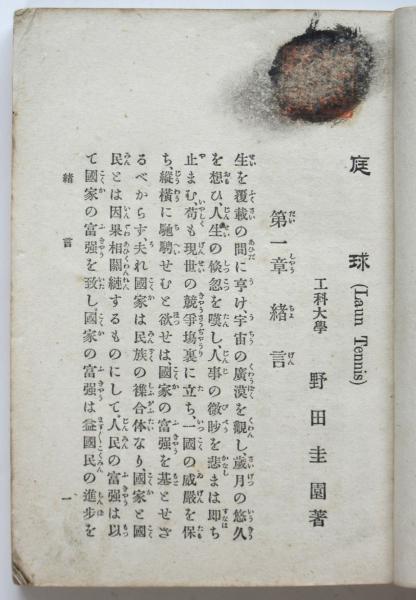 庭球 (Laun Tennis)
工科大學 野田圭園著
第一章 緒言
生を覆載の間に享け宇宙の廣漠を觀し、歲月の悠久
を想ひ、人生の倏忽を嘆し、人事の微眇を悲まは即ち
止まむ、苟も現世の競爭塲裏に立ち、一國の威嚴を保
ち、縱橫に馳騁せむと欲せは、國家の富强を基とせさ
るべからす、夫れ國家は民族の褋合体なり、國家と國
民とは因果相關縺するものにして、人民の富强は以
て國家の富强を致し國家の富强は益國民の進步を
緒言
一